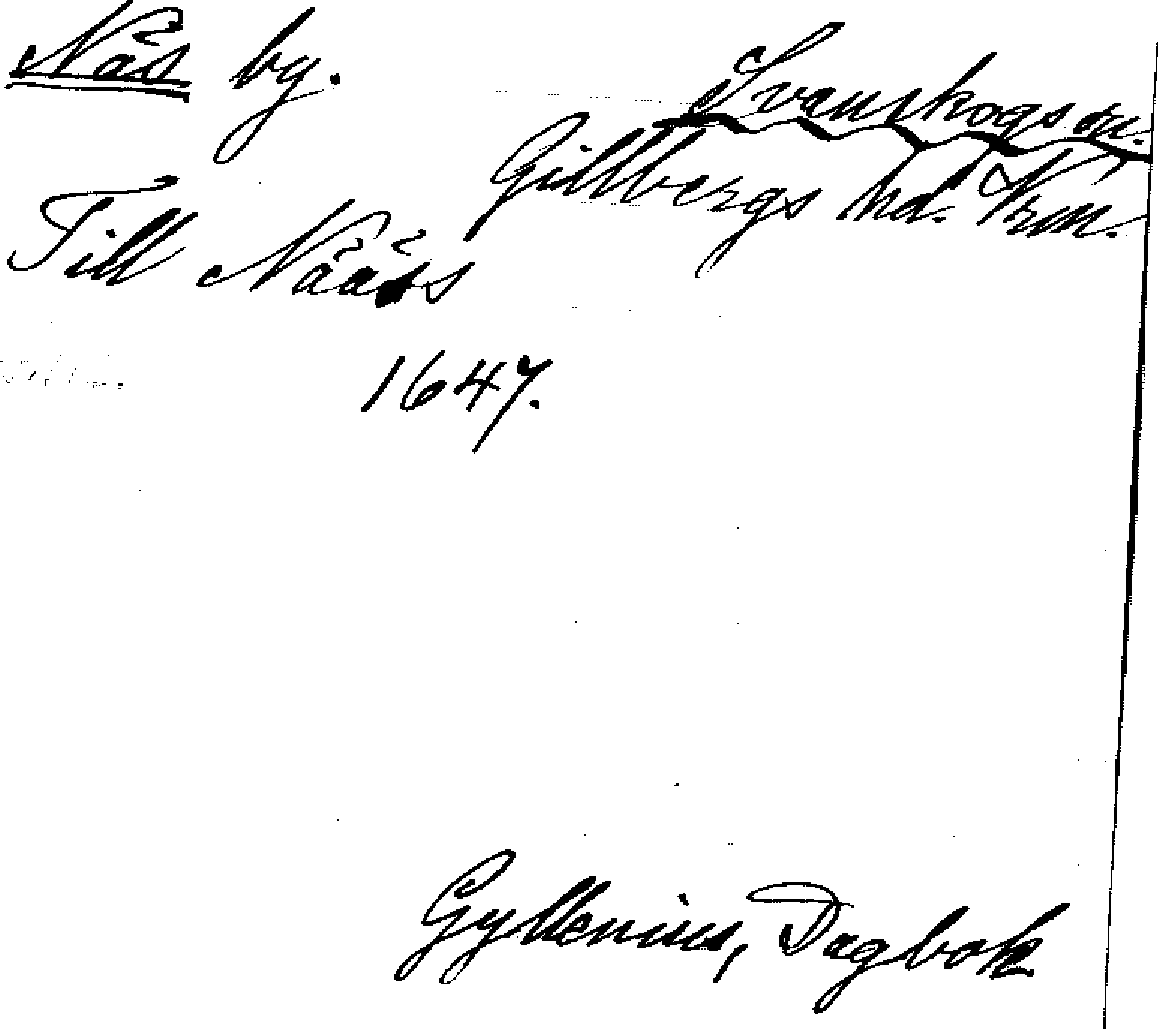 Näs by.
Svanskogs sn.
Gillbergs hd. Vrm.
Till Nääs
1647.
Gyllenius, Dagbok